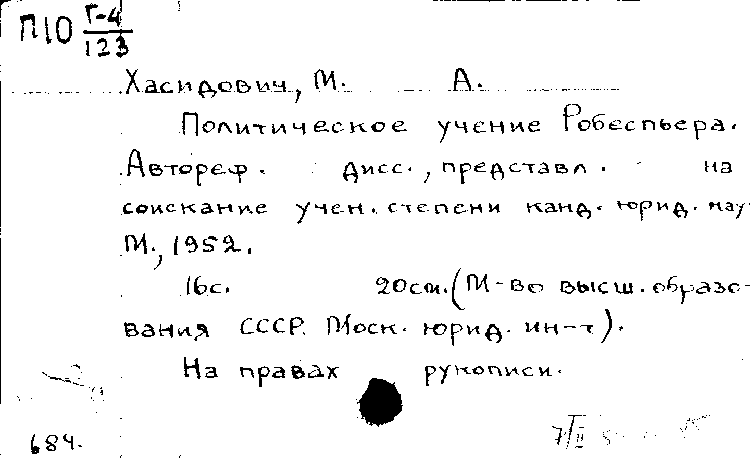 П10 Г-4/123
Хасидович, М. А.
Политическое учение Робеспьера.
Автореф. дисс., представл. на
соискание учен. степени канд. юрид. нау
М., 1952.
16с. 20см. (М-во высш. образо-
вания СССР. Моск. юрид. ин-т).
На правах рукописи.
684.